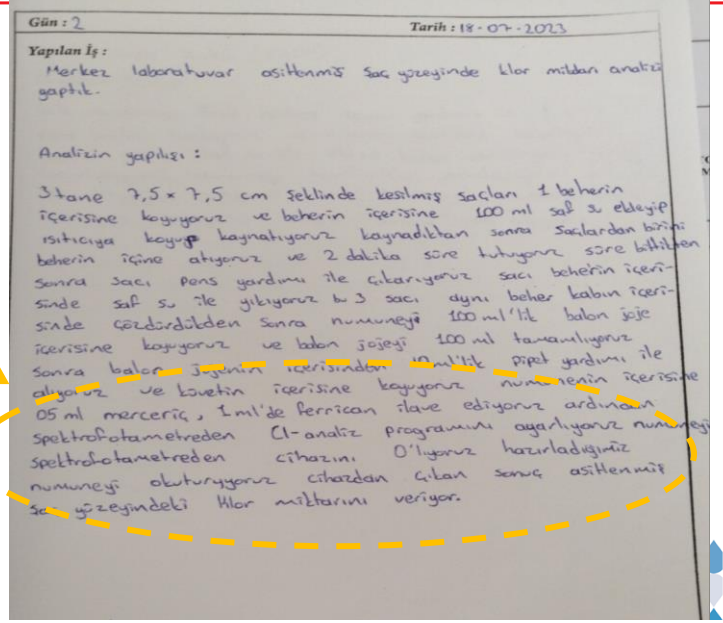 Gün : 2
Tarih : 18-07-2023
Yapılan İş :
Merkez laboratuvar asitlenmiş saç yüzeyinde klor miktarı analizi
yaptık.
Analizin yapılışı :
3 tane 7,5 x 7,5 cm şeklinde kesilmiş saçları 1 beherin
içerisine koyuyoruz ve beherin içerisine 100 ml saf su ekleyip
ısıtıcıya koyup kaynatıyoruz kaynadıktan sonra saçlardan birini
beherin içine atıyoruz ve 2 dakika süre tutuyoruz süre bittikten
sonra sacı pens yardımı ile çıkarıyoruz sacı beherin içeri-
sinde saf su ile yıkıyoruz bu 3 sacı aynı beher kabın içeri-
sinde çözdürdükden sonra numuneyi 100 ml'lik balon joje
içerisine koyuyoruz ve balon jojeyi 100 ml tamamlıyoruz
sonra balon jojenin içerisinden 10 ml'lik pipet yardımı ile
alıyoruz ve küvetin içerisine koyuyoruz numunenin içerisine
05 ml merceric, 1 ml'de ferrican ilave ediyoruz ardından
spektrofotametreden Cl-analiz programını ayarlıyoruz numuneyi
spektrofotametreden cihazını 0'lıyoruz hazırladığımız
numuneyi okuturuyoruz cihazdan çıkan sonuç asitlenmiş
yüzeyindeki klor miktarını veriyor.